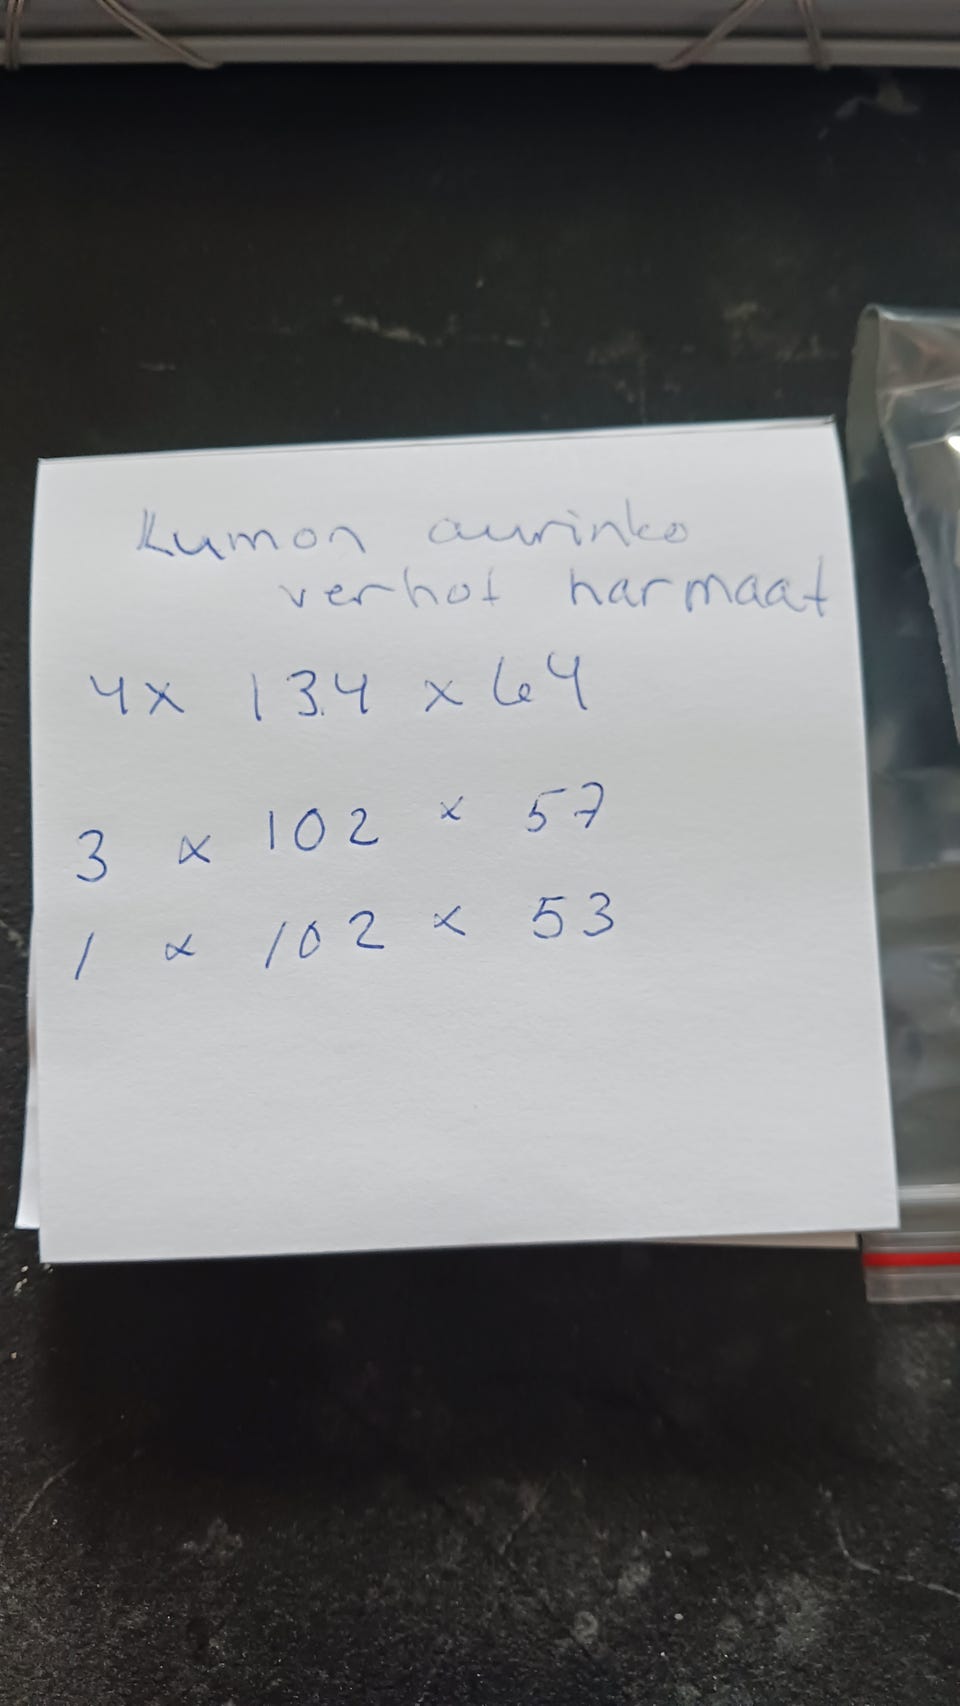 Lumon aurinko
verhot harmaat
4x 134 x 64
3 x 102 x 57
1 x 102 x 53